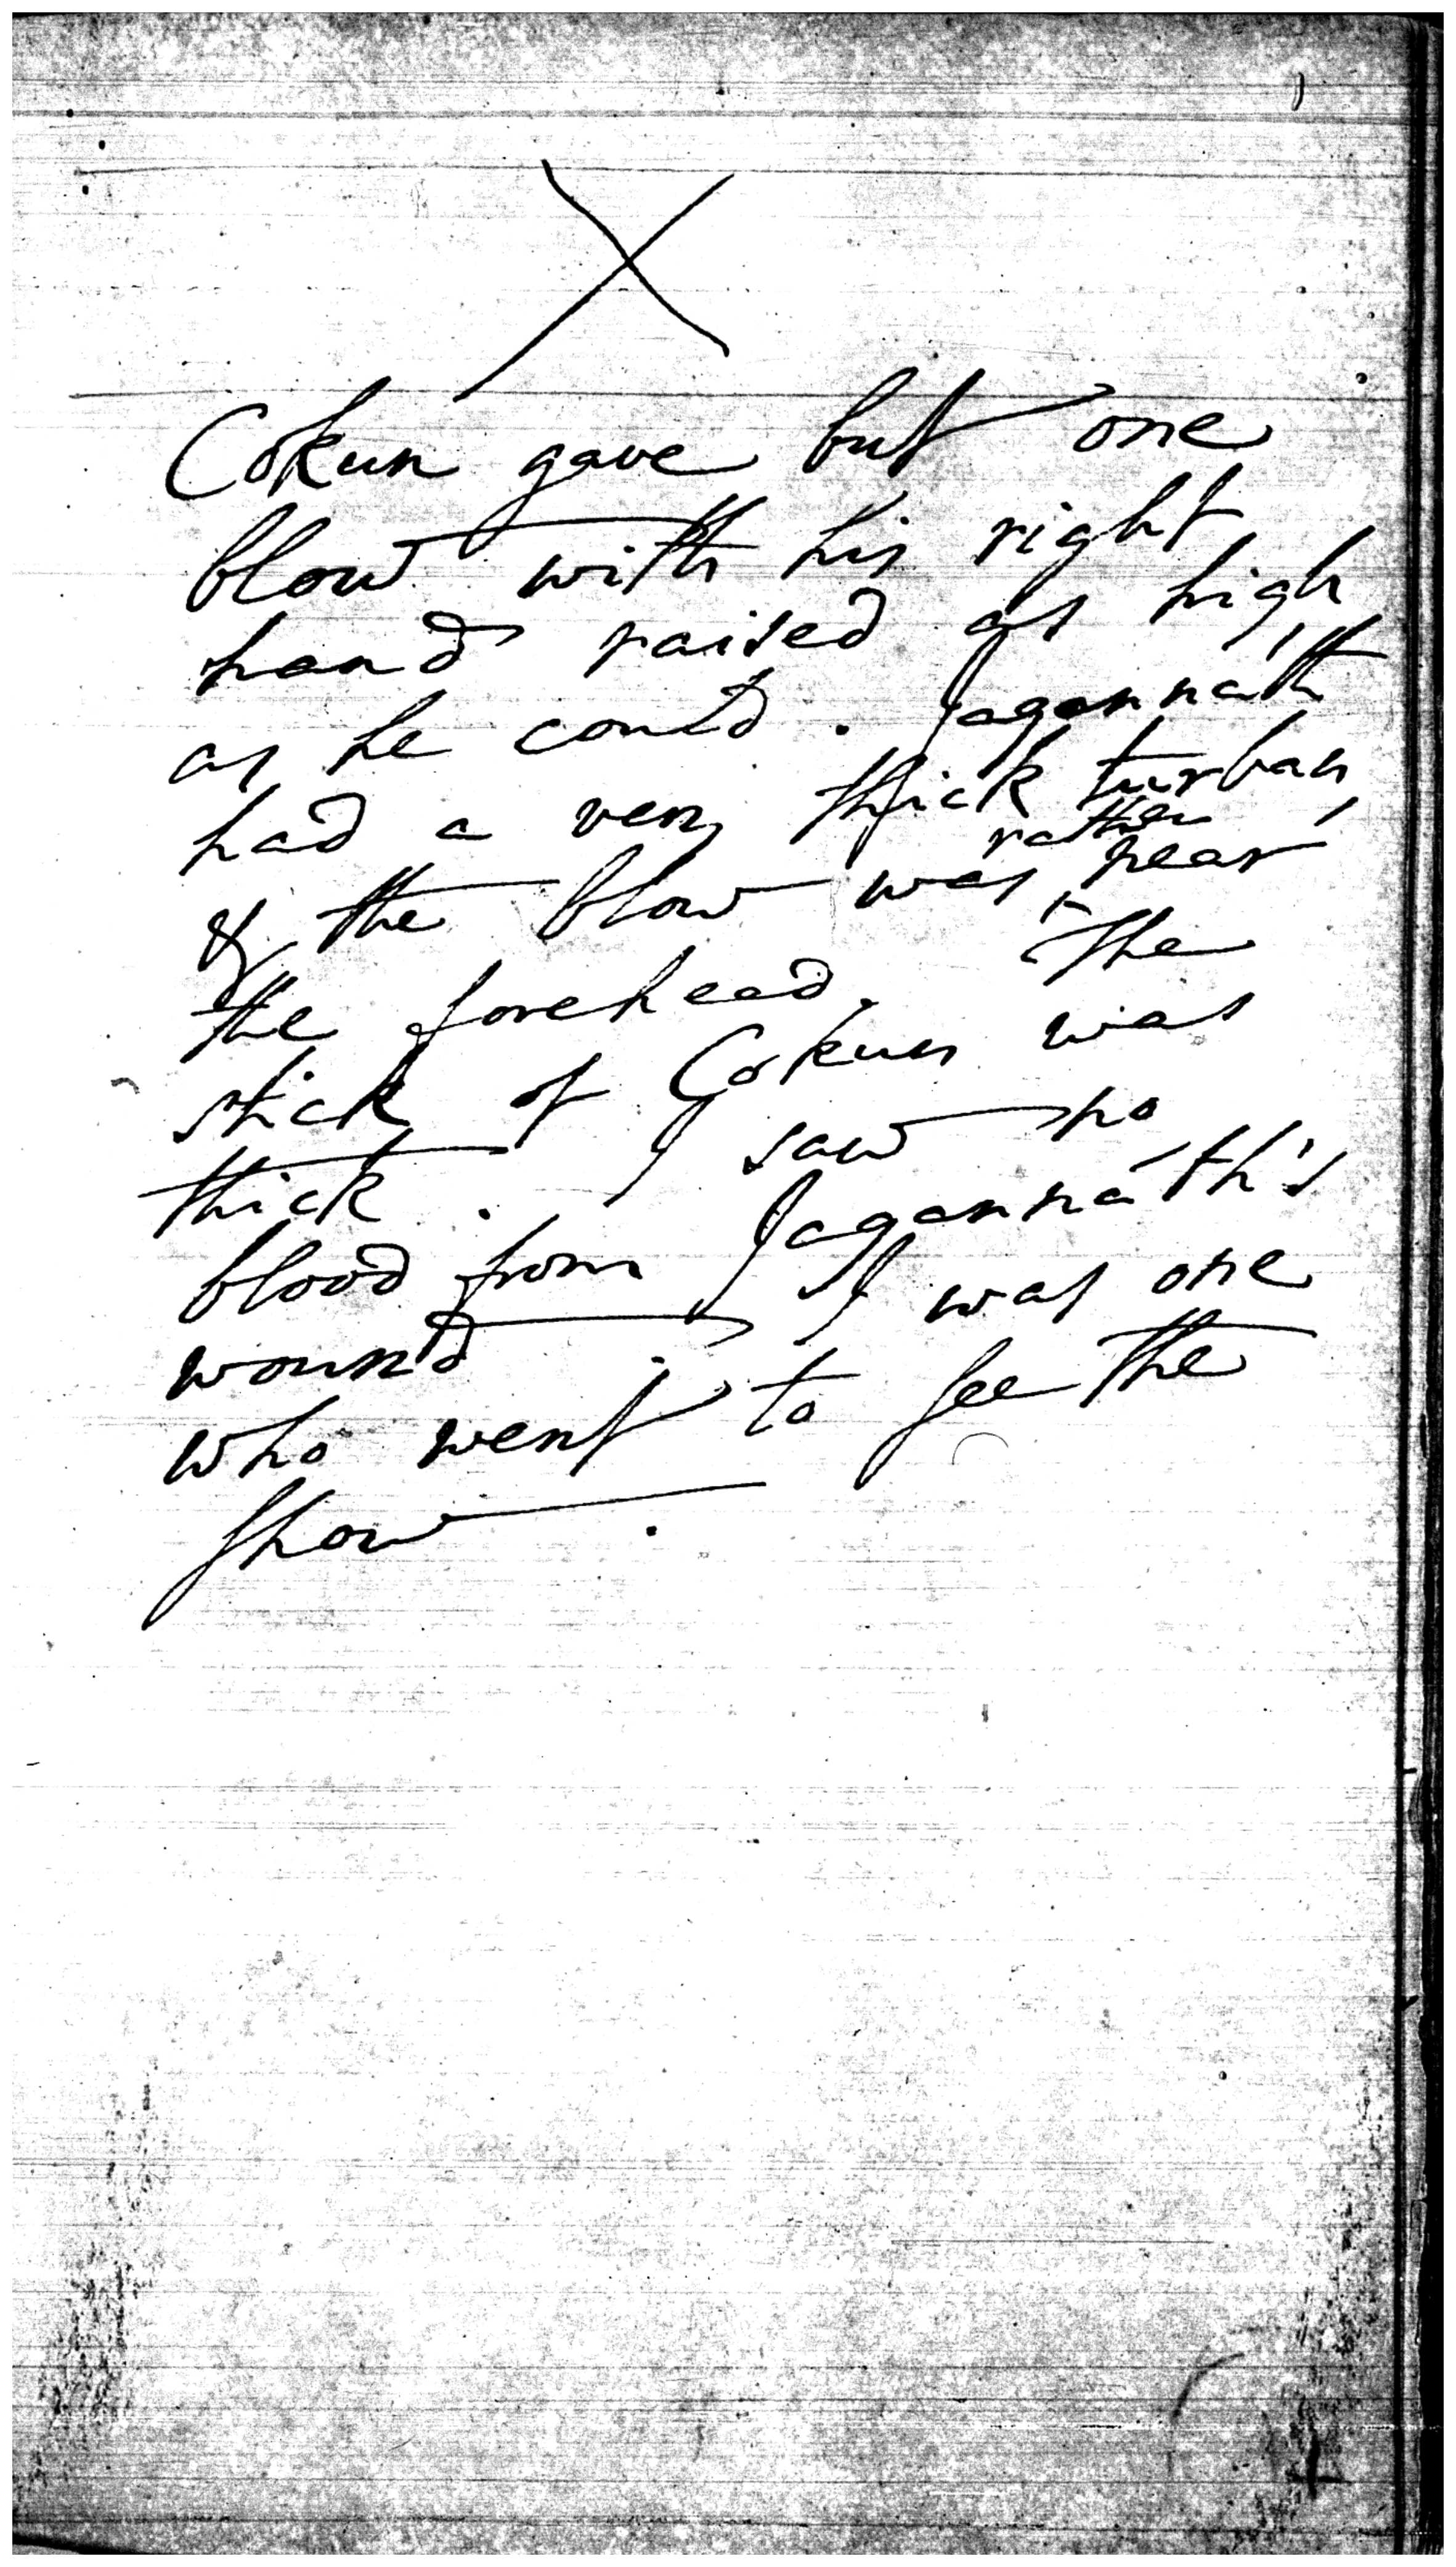 X
Cokun gave but one
blow with his right
hand raised as high
as he could. Jagannath
had a very thick turban,
& the blow was ^rather near
the forehead. The
stick of Cokun was
thick. I saw no
blood from Jagannáth's
wound. I was one
who went to see the
show.